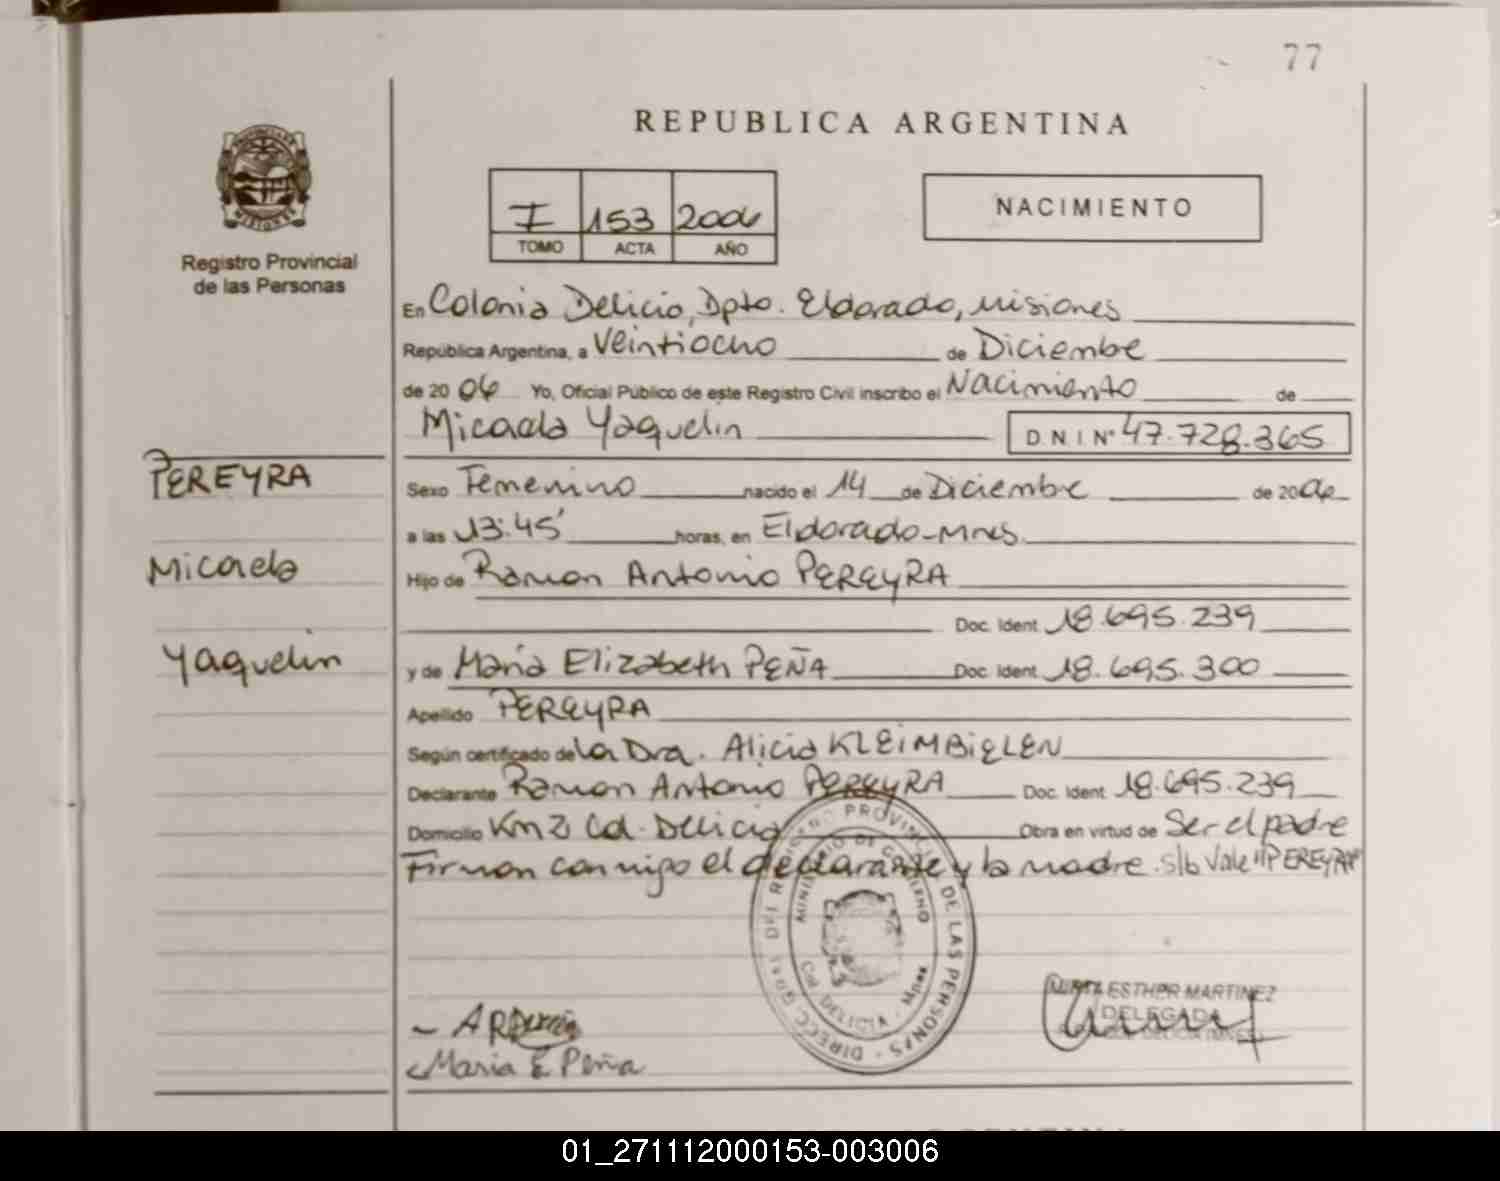 77
REPUBLICA ARGENTINA
PROVINCIA DE
MISIONES
Registro Provincial
de las Personas
I 153 2006
TOMO ACTA AÑO
NACIMIENTO
En Colonia Delicia, Dpto. Eldorado, Misiones
República Argentina, a Veintiocho de Diciembre
de 2006 Yo, Oficial Público de este Registro Civil inscribo el Nacimiento de
Micaela Yaquelin DNI Nº 47.728.365
PEREYRA
Sexo Femenino nacido el 14 de Diciembre de 2006
a las 13:45' horas, en Eldorado-Mnes.
Micaela
Hijo de Ramon Antonio PEREYRA
Doc. Ident 18.695.239
Yaquelin
y de María Elizabeth PEÑA Doc. Ident 18.695.300
Apellido PEREYRA
Según certificado de La Dra. Alicia KLEIMBIELEN
Declarante Ramon Antonio PEREYRA Doc. Ident 18.695.239
Domicilio Km 2 Col. Delicia Obra en virtud de Ser el padre
Firman conmigo el declarante y la madre. s/b Vale "PEREYRA"
DIRECC. GRAL. DEL REGISTRO PROVINCIAL DE LAS PERSONAS
MINISTERIO DE GOBIERNO
Col. DELICIA - Mnes
ESTHER MARTINEZ
DELEGADA
Maria E Peña
01_271112000153-003006